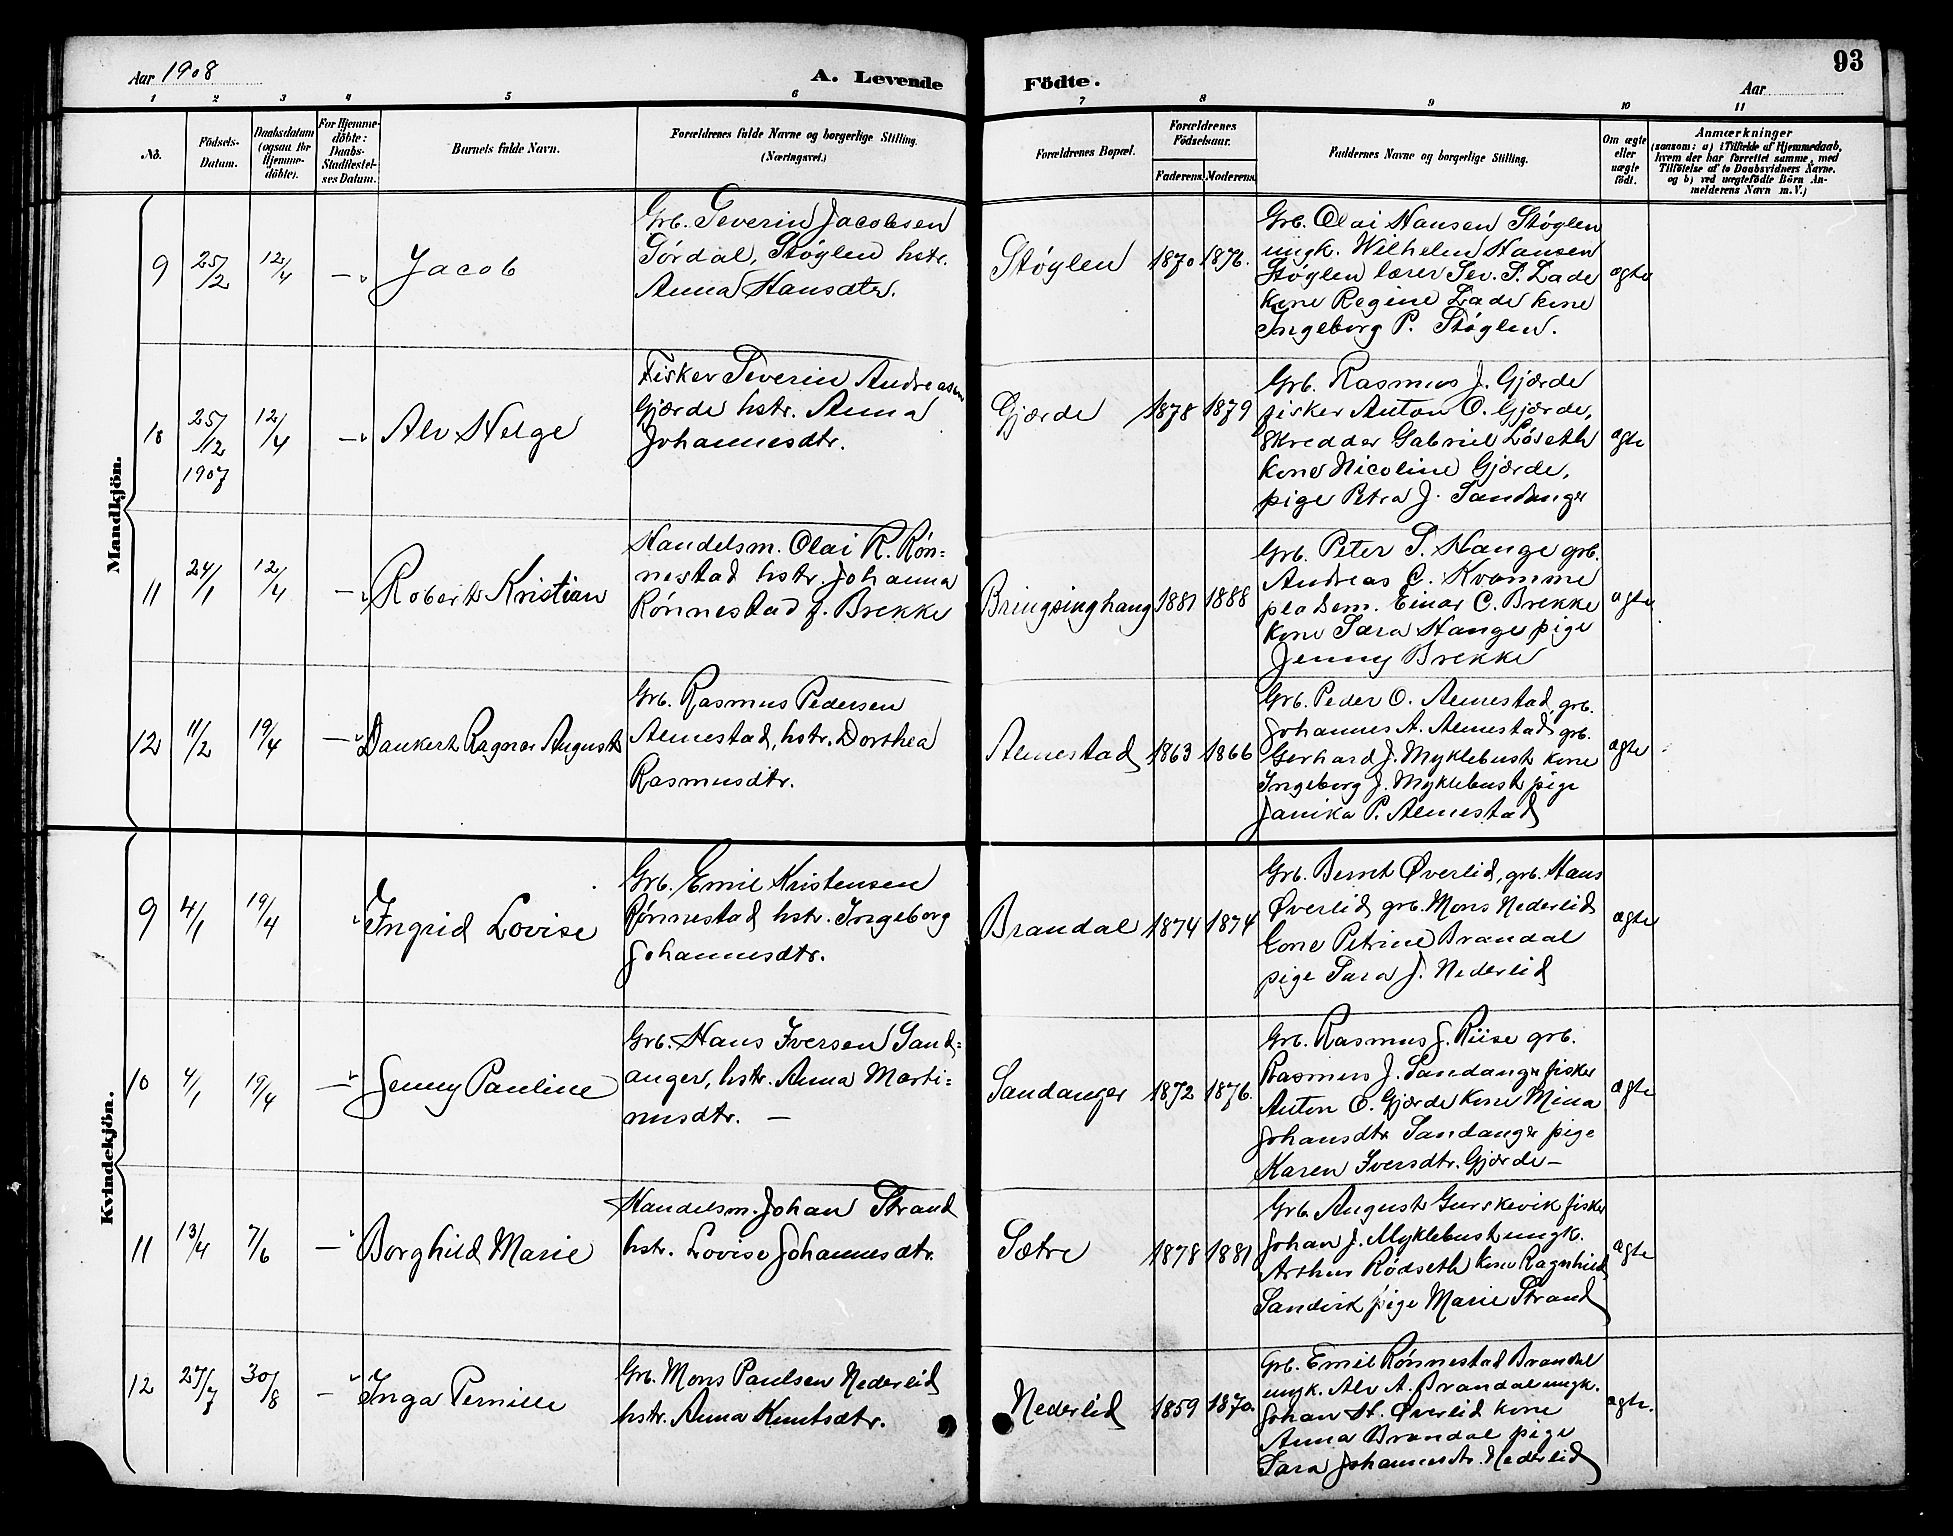 Aar 1908
A. Levende
Födte.
93
Aar
1 2 3 4 5 6 7 8 9 10 11
No.
Födsels-
Datum.
Daabsdatum
(ogsaa for
Hjemme-
döbte).
For Hjemme-
döbte:
Daabs-
Stadfæstel-
ses Datum.
Barnets fulde Navn.
Forældrenes fulde Navne og borgerlige Stilling.
(Næringsvei.)
Forældrenes Bopæl.
Forældrenes
Födselsaar.
Faderens. Moderens.
Faddernes Navne og borgerlige Stilling.
Om ægte
eller
uægte
födt.
Anmærkninger
(saasom: a) i Tilfælde af Hjemmedaab,
hvem der har forrettet samme, med
Tilföielse af to Daabsvidners Navne.
og b) ved uægtefödte Börn An-
melderens Navn m. V.)
Mandkjön.
9 25/12 12/4 — Jacob
Grb. Severin Jacobsen
Sørdal, Støylen hstr.
Anna Hansdtr.
Støylen 1870 1876.
Grb. Olai Hansen Støylen
ungk. Wilhelm Hansen
Støylen lærer Sev. S. Lade
kone Regine Lade kone
Ingeborg P. Støylen.
ægte
10 25/12 1907 12/4 — Alv Helge
Fisker Severin Andreasen
Gjærde hstr. Anna
Johannesdtr.
Gjærde 1878 1879
Grb. Rasmus J. Gjærde
fisker Anton O. Gjærde,
skredder Gabriel Løseth
kone Nicoline Gjærde,
pige Petra J. Sandanger
ægte
11 24/1 12/4 — Robert Kristian
Handelsm. Olai R. Røn=
nestad hstr. Johanna
Rønnestad f. Brekke
Bringsinghaug 1881 1888
Grb. Peter S. Hauge grb.
Andreas C. Kvamme
Einar C. Brekke
kone Sara Hauge pige
Jenny Brekke
ægte
12 11/2 19/4 — Dankert Ragnar August
Grb. Rasmus Pedersen
Almestad, hstr. Dorthea
Rasmusdtr.
Almestad 1863 1866
Grb. Peder O. Almestad, grb.
Johannes A. Almestad, grb.
Gerhard J. Myklebust kone
Ingeborg J. Myklebust pige
Janika P. Almestad
ægte
Kvindekjön.
9 4/1 19/4 Ingrid Lovise
Grb. Emil Kristensen
Rønnestad hstr. Ingeborg
Johannesdtr.
Brandal 1874 1874
Grb. Bernt Øverlid, grb. Hans
Øverlid grb. Mons Nederlid
kone Petrine Brandal
pige Sara J. Nederlid
ægte
10 4/1 19/4 — Jenny Pauline
Grb. Hans Iversen Sand=
anger, hstr. Anna Marti=
nusdtr. —
Sandanger 1872 1876.
Grb. Rasmus J. Riise grb.
Rasmus J. Sandanger fisker
Anton O. Gjærde kone Mina
Johansdtr Sandanger pige
Karen Iversdtr. Gjærde —
ægte
11 13/4 7/6 — Borghild Marie
Handelsm. Johan Strand
hstr. Lovise Johannesdtr.
Sætre 1878 1881
Grb. August Gurskevik fisker
Johan J. Myklebust ungk.
Arthur Rødseth kone Ragnhild
Sandvik pige Marie Strand
ægte
12 27/7 30/8 — Inga Pernille
Grb. Mons Paulsen Nederlid
hstr. Anna Knutsdtr.
Nederlid 1859 1870.
Grb. Emil Rønnestad Brandal
ungk. Alv A. Brandal ungk.
Johan H. Øverlid kone
Anna Brandal pige
Sara Johannesdtr. Nederlid
ægte.